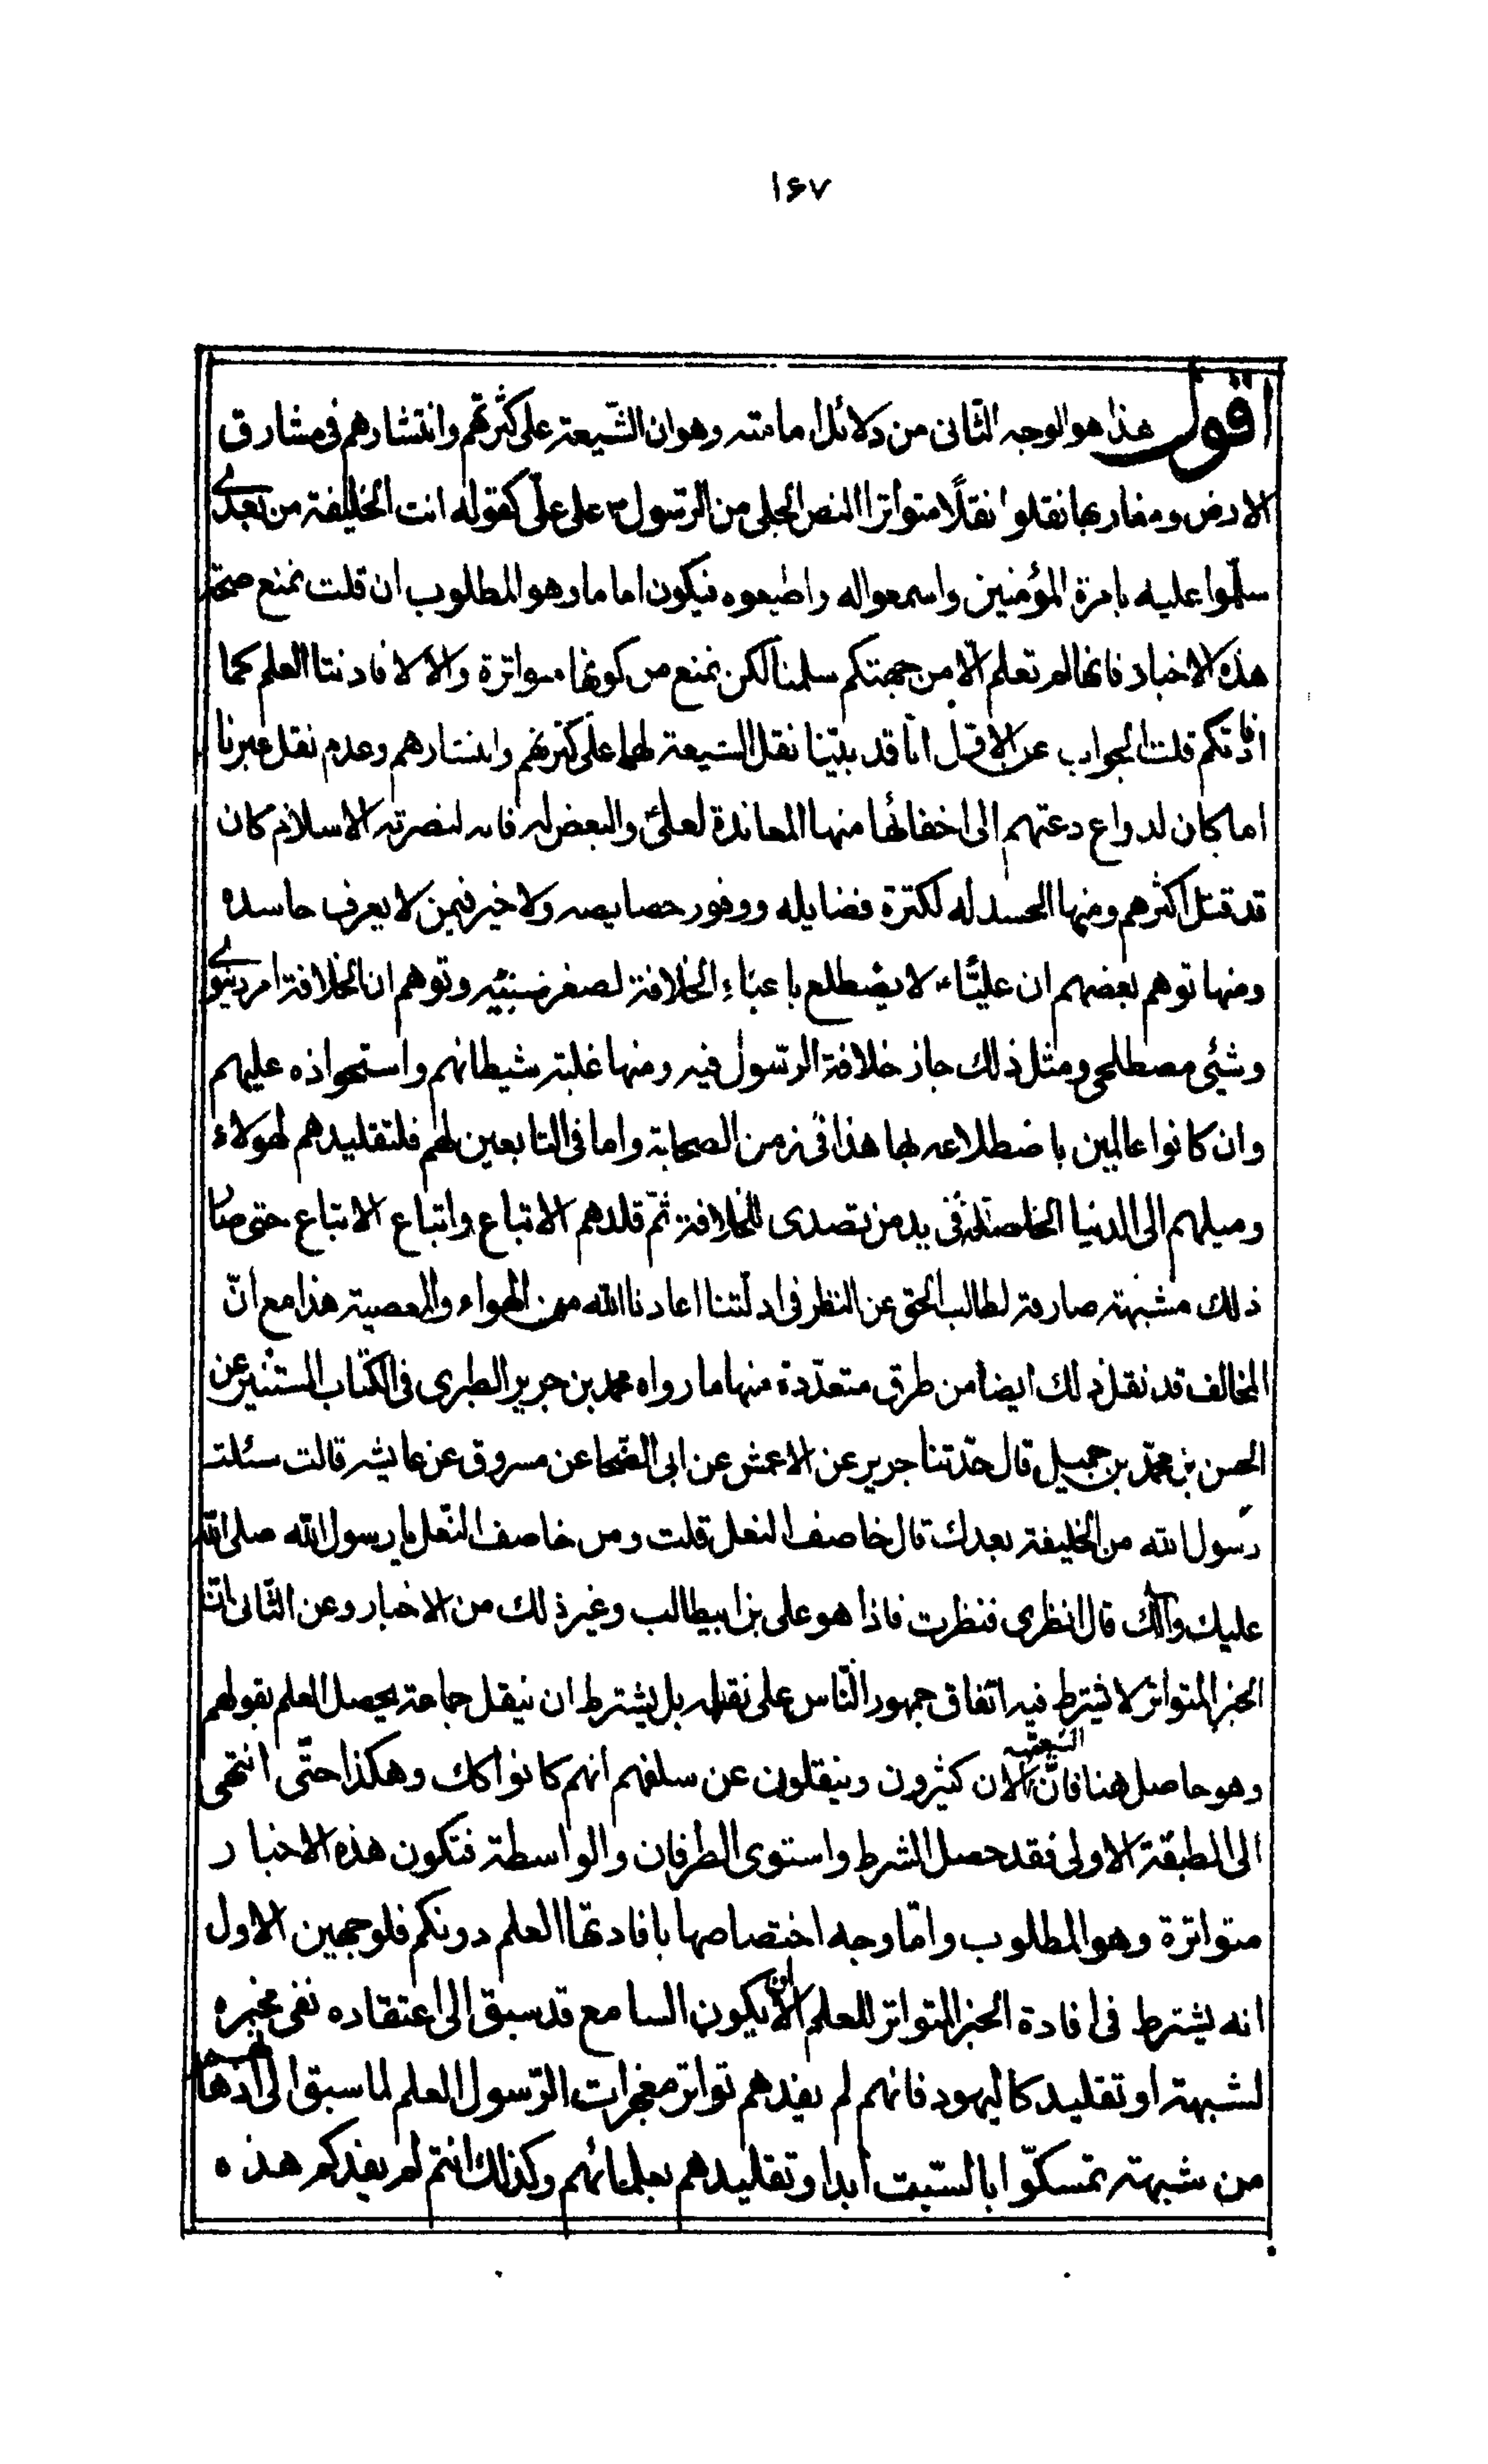 ۱۶۷
اقول هذا هو الوجه الثانى من دلائل امامته وهو ان الشّيعة على كثرتهم وانتشارهم فى مشارق
الارض ومغاربها نقلوا نقلًا متواترا النص الجلى من الرّسول ص على علىّ كقوله انت الخليفة من بعدى
سلّموا عليه بامرة المؤمنين واسمعوا له واطيعوه فيكون اماما وهو المطلوب ان قلت نمنع صحّة
هذه الاخبار فانها لم تعلم الّا من جهتكم سلمنا لكن نمنع من كونها متواترة والا لافادتنا العلم كما
افادتكم قلت الجواب عن الاوّل انّا قد بيّنا نقل الشيعة لها على كثرتهم وانتشارهم وعدم نقل غيرنا
اما كان لدواع دعتهم الى اخفائها منها المعاندة لعلىّ والبغض له فانه لنصرته الاسلام كان
قد قتل اكثرهم ومنها الحسد له لكثرة فضايله ووفور خصايصه ولا خير فيمن لا يعرف حاسده
ومنها توهم بعضهم ان عليّا ع لا يضطلع باعباء الخلافة لصغر سنّيه وتوهم ان الخلافة امر دنيوى
وشئى مصطلحى ومثل ذلك جاز خلافة الرّسول فيه ومنها غلبة شيطانهم واستحواذه عليهم
وان كانوا عالمين باضطلاعه بها هذا فى زمن الصحابة واما فى التابعين لهم فلتقليدهم لهولاء
وميلهم الى الدنيا الحاصلة فى يد من تصدى للخلافة ثمّ قلدهم الاتباع واتباع الاتباع حتى صار
ذلك شبهة صارفة لطالب الحق عن النظر فى ادلّتنا اعاذنا الله من الهواء والعصبية هذا مع انّ
المخالف قد نقل ذلك ايضا من طرق متعدّدة منها ما رواه محمد بن جرير الطبرى فى الكتاب المستنير عن
الحسن بن محمّد بن جميل قال حدّثنا جرير عن الاعمش عن ابى الضّحا عن مسروق عن عايشه قالت سئلت
رسول الله من الخليفة بعدك قال خاصف النعل قلت ومن خاصف النّعل يا رسول الله صلى الله
عليك وآلك قال انظرى فنظرت فاذا هو على بن ابيطالب وغير ذلك من الاخبار وعن الثّانى انّ
الخبر المتواتر لا يشترط فيه اتفاق جمهور النّاس على نقله بل يشترط ان ينقل جماعة يحصل العلم بقولهم
وهو حاصل هنا فانّ الشيعة الان كثيرون وينقلون عن سلفهم انهم كانوا كك وهكذا حتّى انتهى
الى الطبقة الاولى فقد حصل الشرط واستوى الطرفان والواسطة فتكون هذه الاخبار
متواترة وهو المطلوب وامّا وجه اختصاصها بافادتها العلم دونكم فلوجهين الاول
انه يشترط فى افادة الخبر المتواتر للعلم ان لا يكون السامع قد سبق الى اعتقاده نفى مخبره
لشبهة او تقليد كاليهود فانهم لم يفدهم تواتر معجزات الرّسول العلم لما سبق الى اذهانهم
من شبهة تمسكّوا بالسّبت ابدا وتقليدهم بعلمائهم وكذلك انتم لم يفدكم هذه